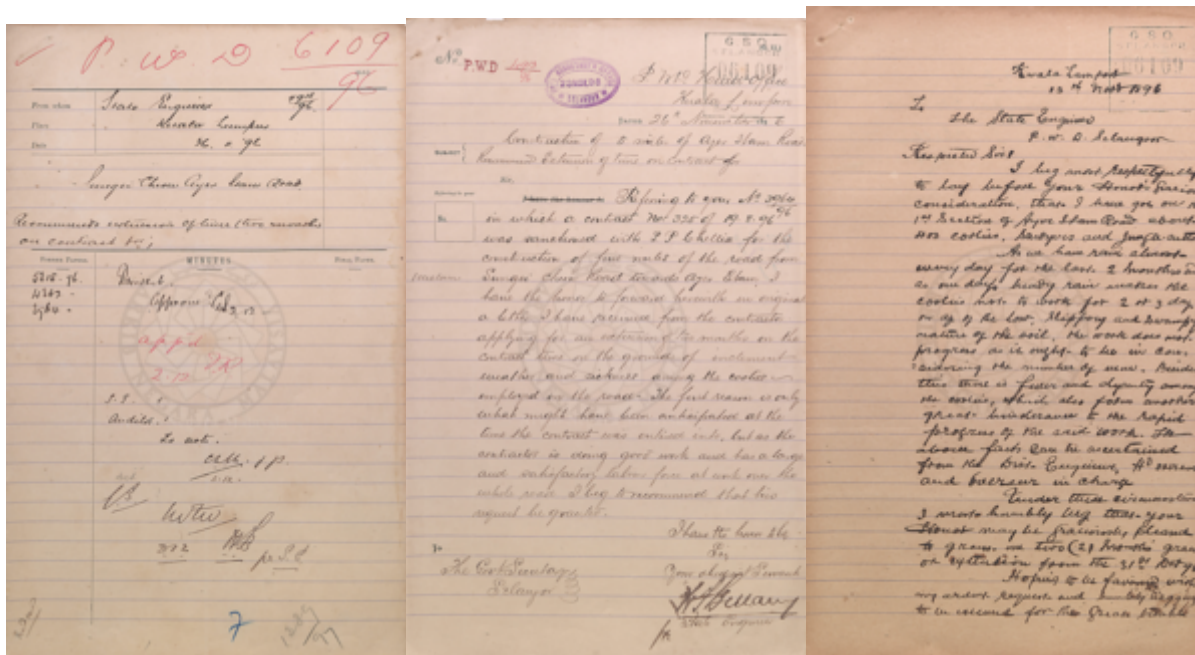 P. W. D 6109
96
From whom State Engineer
Place Kuala Lumpur
Date 96
Sungei Chow Ayer Itam Road
Recommends extension of time two months
on contract for
MINUTES
5215-96.
4343 -
3964 -
Resident.
Approve
appd
2.12.
Auditor.
To note.
No. P.W.D
G S O
SELANGOR
06109
P. W. D. Head Office
Kuala Lumpur
26th November 96
SUBJECT
Construction of 5 miles of Ayer Itam Road
Recommend Extension of time on contract for
Sir,
Referring to your No 3964/96
in which a contract No 325 of 19.9.96
was sanctioned with I P Chellia for the
construction of five miles of the road from
Sungei Chow Road towards Ayer Itam, I
have the honor to forward herewith in original
a letter I have received from the contractor
applying for an extension of two months on the
contract time on the grounds of inclement
weather and sickness among the coolies
employed on the road. The first reason is only
what might have been anticipated at the
time the contract was entered into, but as the
contractor is doing good work and has a large
and satisfactory labour force at work over the
whole road I beg to recommend that his
request be granted.
I have the honor to be
Sir
Your obedient Servant
State Engineer
To
The Govt Secretary
Selangor
G S O
SELANGOR
06109
Kuala Lumpor
13th Novr 1896
To
The State Engineer
P. W. D. Selangor
Respected Sir
I beg most respectfully
to lay before your Honor's
consideration, that I have got on
1st Section of Ayer Itam Road about
400 coolies, Sawyers and Jungle
As we have rain almost
every day for the last 2 months
as one day's heavy rain makes the
coolies not to work for 2 or 3 days
on a/c of the low, slippery and swampy
nature of the soil, the work does not
progress as it ought to be in con-
sidering the number of men. Besides
this there is fever and dysentry among
the coolies, which also forms another
great hinderance to the rapid
progress of the said work. The
above facts can be ascertained
from the Dist. Engineer,
and overseer in charge
Under these circumstances
I most humbly beg that your
Honor may be graciously pleased
to grant me two (2) months grace
or extention from the 31st
Hoping to be favored with
my ardent request and
to be excused for the great trouble